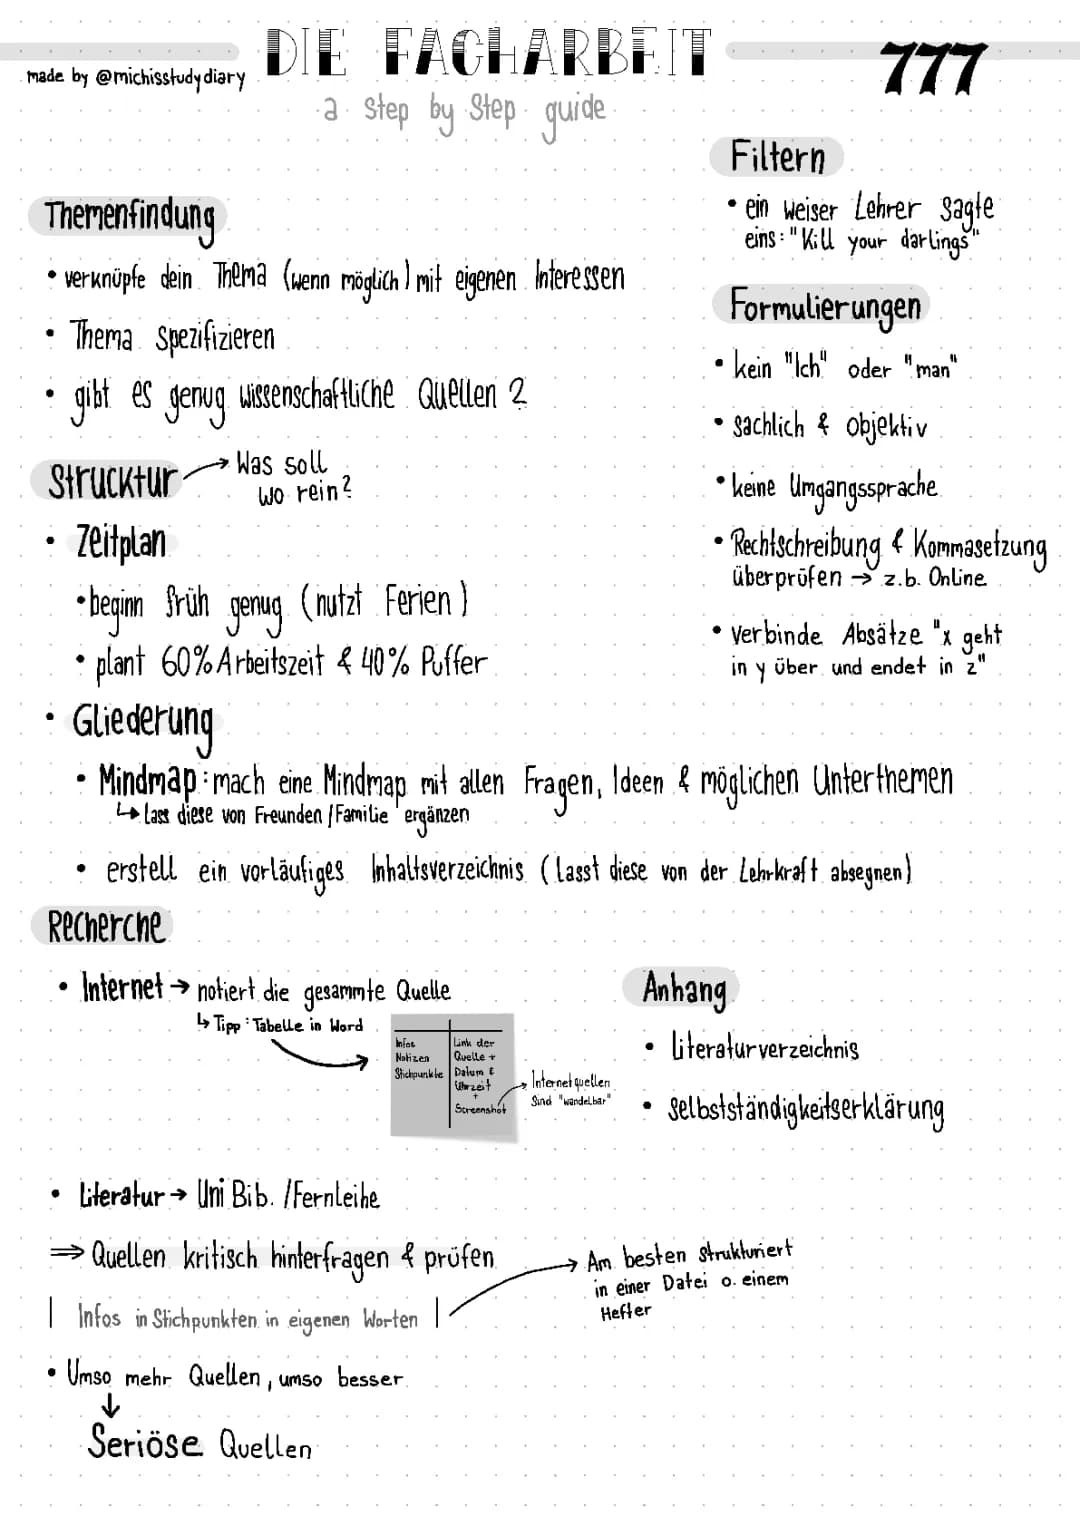 DIE FACHARBEIT
777
made by @michisstudydiary
a Step by Step guide
Themenfindung
• verknüpfe dein Thema (wenn möglich) mit eigenen Interessen
• Thema Spezifizieren
• gibt es genug wissenschaftliche Quellen?
Strucktur → Was soll
wo rein?
• Zeitplan
• beginn früh genug (nutzt Ferien)
• plant 60% Arbeitszeit & 40% Puffer
• Gliederung
• Mindmap: mach eine Mindmap mit allen Fragen, Ideen & möglichen Unterthemen
↳ Lass diese von Freunden / Familie ergänzen
• erstell ein vorläufiges Inhaltsverzeichnis (lasst diese von der Lehrkraft absegnen)
Filtern
• ein weiser Lehrer sagte
eins: "Kill your darlings"
Formulierungen
• kein "Ich" oder "man"
• sachlich & objektiv
• keine Umgangssprache
• Rechtschreibung & Kommasetzung
überprüfen → z.b. Online
• verbinde Absätze "x geht
in y über und endet in z"
Recherche
• Internet → notiert die gesammte Quelle
↳ Tipp: Tabelle in Word
Infos
Notizen
Stichpunkte
Link der
Quelle +
Datum &
Uhrzeit
+
Screenshot
→ Internetquellen
sind "wandelbar"
• Literatur → Uni Bib. / Fernleihe
⇒ Quellen kritisch hinterfragen & prüfen
| Infos in Stichpunkten in eigenen Worten |
→ Am besten strukturiert
in einer Datei o. einem
Hefter
• Umso mehr Quellen, umso besser
↓
Seriöse Quellen
Anhang
• Literaturverzeichnis
• Selbstständigkeitserklärung